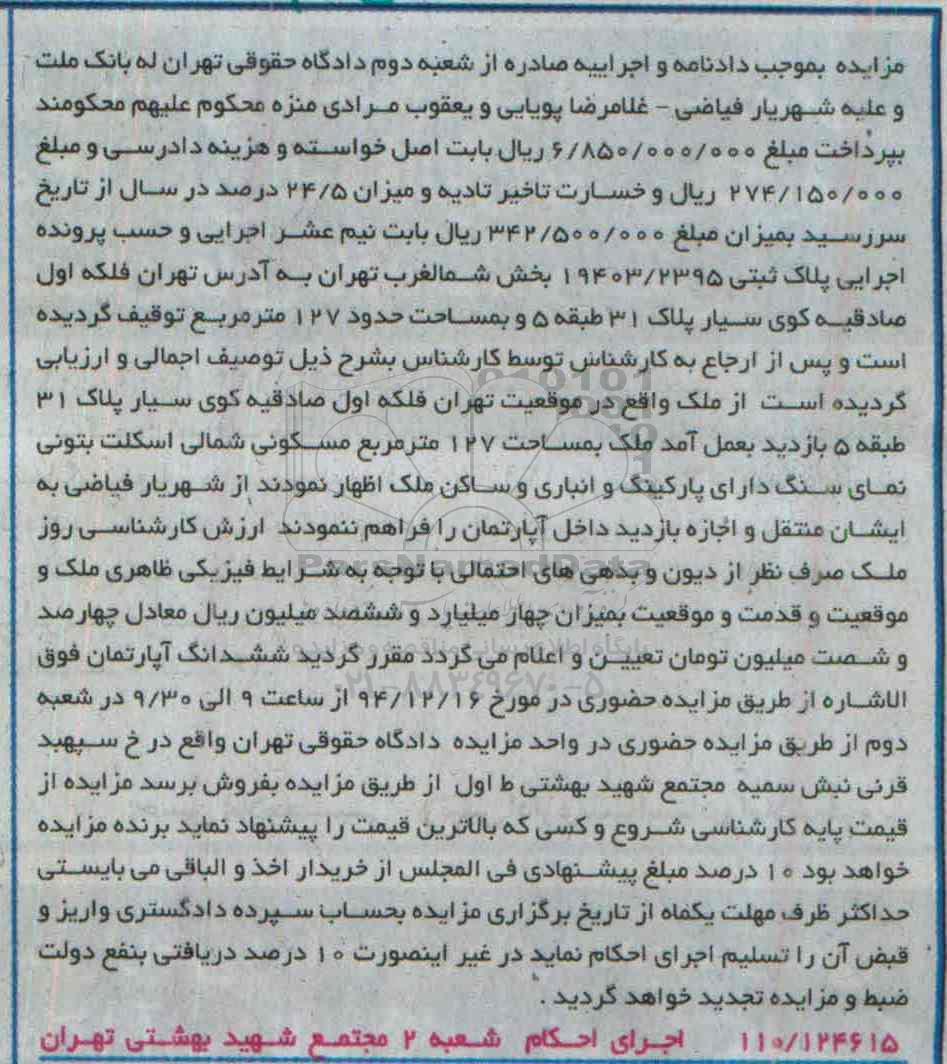 مزایده بموجب دادنامه و اجراییه صادره از شعبه دوم دادگاه حقوقی تهران له بانک ملت
و علیه شهریار فیاضی - غلامرضا پویایی و یعقوب مرادی منزه محکوم علیهم محکومند
بپرداخت مبلغ ۶/۸۵۰/۰۰۰/۰۰۰ ریال بابت اصل خواسته و هزینه دادرسی و مبلغ
۲۷۴/۱۵۰/۰۰۰ ریال و خسارت تاخیر تادیه و میزان ۲۴/۵ درصد در سال از تاریخ
سررسید بمیزان مبلغ ۳۴۲/۵۰۰/۰۰۰ ریال بابت نیم عشر اجرایی و حسب پرونده
اجرایی پلاک ثبتی ۱۹۴۰۳/۲۳۹۵ بخش شمالغرب تهران به آدرس تهران فلکه اول
صادقیه کوی سیار پلاک ۳۱ طبقه ۵ و بمساحت حدود ۱۲۷ مترمربع توقیف گردیده
است و پس از ارجاع به کارشناس توسط کارشناس بشرح ذیل توصیف اجمالی و ارزیابی
گردیده است از ملک واقع در موقعیت تهران فلکه اول صادقیه کوی سیار پلاک ۳۱
طبقه ۵ بازدید بعمل آمد ملک بمساحت ۱۲۷ مترمربع مسکونی شمالی اسکلت بتونی
نمای سنگ دارای پارکینگ و انباری و ساکن ملک اظهار نمودند از شهریار فیاضی به
ایشان منتقل و اجازه بازدید داخل آپارتمان را فراهم ننمودند ارزش کارشناسی روز
ملک صرف نظر از دیون و بدهی های احتمالی با توجه به شرایط فیزیکی ظاهری ملک و
موقعیت و قدمت و موقعیت بمیزان چهار میلیارد و ششصد میلیون ریال معادل چهارصد
و شصت میلیون تومان تعیین و اعلام می گردد مقرر گردید ششدانگ آپارتمان فوق
الاشاره از طریق مزایده حضوری در مورخ ۹۴/۱۲/۱۶ از ساعت ۹ الی ۹/۳۰ در شعبه
دوم از طریق مزایده حضوری در واحد مزایده دادگاه حقوقی تهران واقع در خ سپهبد
قرنی نبش سمیه مجتمع شهید بهشتی ط اول از طریق مزایده بفروش برسد مزایده از
قیمت پایه کارشناسی شروع و کسی که بالاترین قیمت را پیشنهاد نماید برنده مزایده
خواهد بود ۱۰ درصد مبلغ پیشنهادی فی المجلس از خریدار اخذ و الباقی می بایستی
حداکثر ظرف مهلت یکماه از تاریخ برگزاری مزایده بحساب سپرده دادگستری واریز و
قبض آن را تسلیم اجرای احکام نماید در غیر اینصورت ۱۰ درصد دریافتی بنفع دولت
ضبط و مزایده تجدید خواهد گردید .
۱۱۰/۱۲۴۶۱۵ اجرای احکام شعبه ۲ مجتمع شهید بهشتی تهران
ParsNamadData
۰۲۱-۸۸۳۴۹۶۷۰-۵